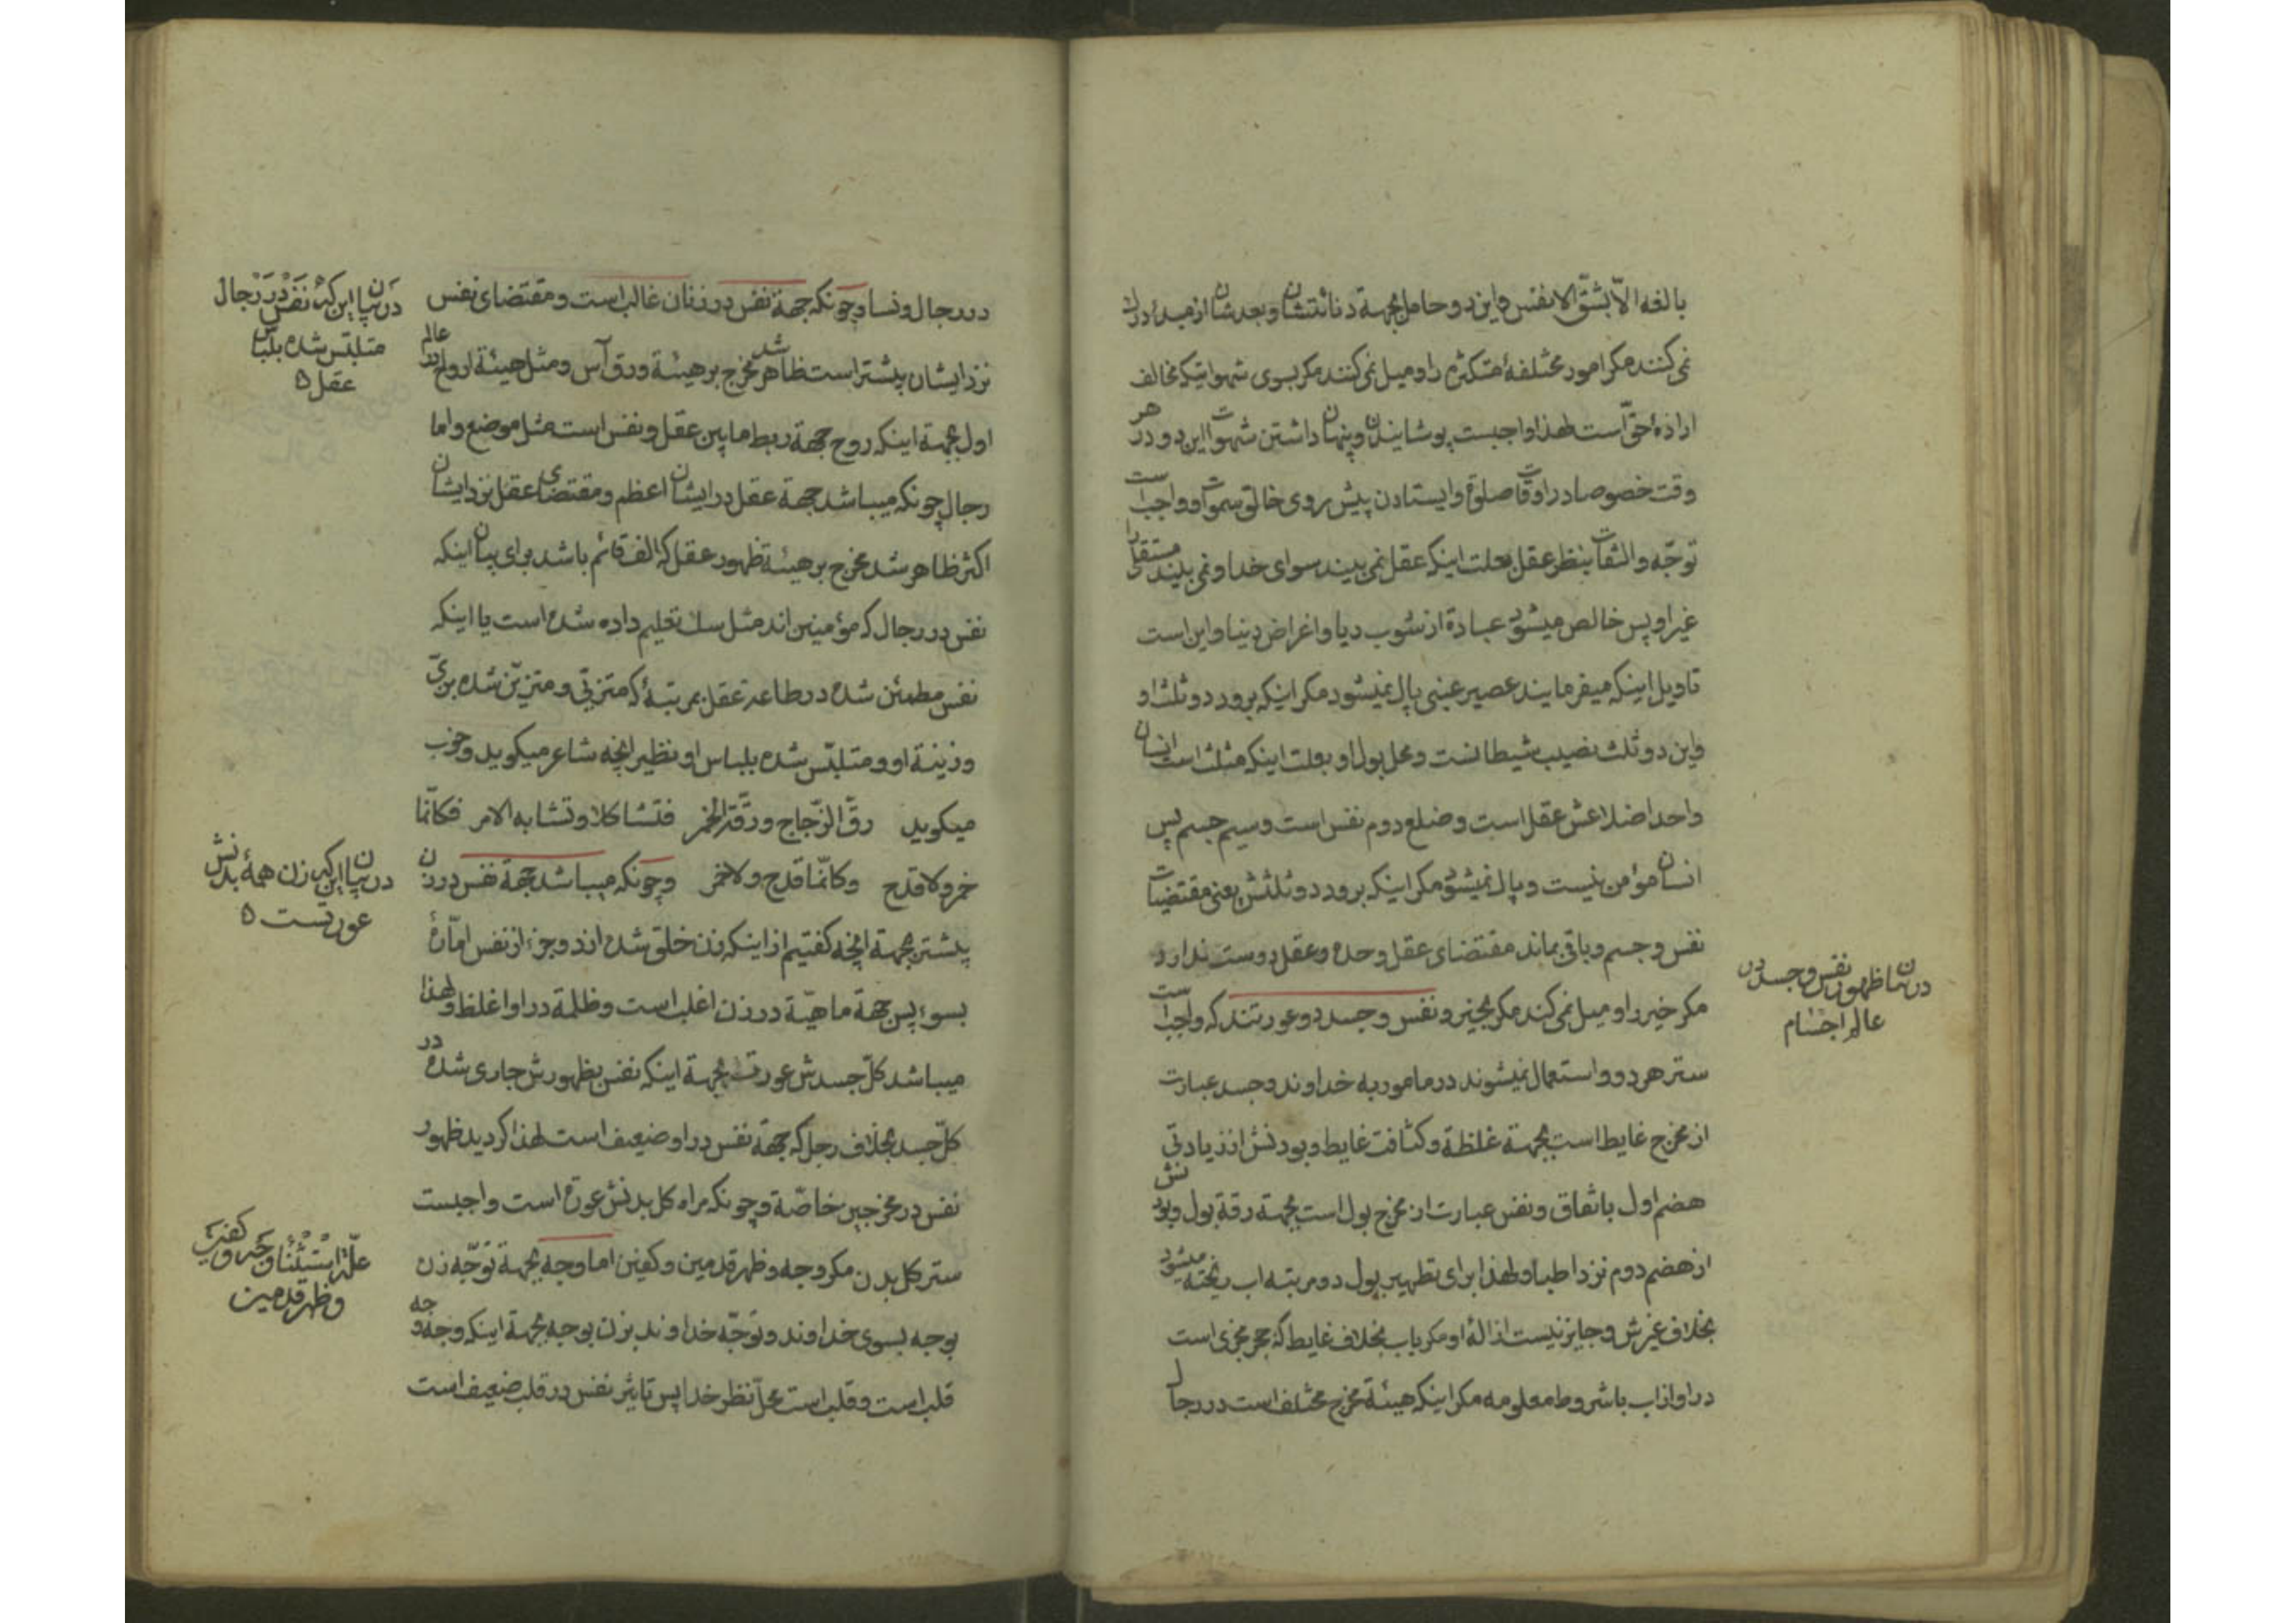 بالغه الّا بشقّ الانفس و این دو حامل بجهة دنائتشان و بعدشان از مبدء ادراك
نمی کنند مکر امور مختلفهٔ متکثره را و میل نمی کنند مکر بسوی شهواتیکه مخالف
ارادهٔ حقّ است لهذا واجبست پوشانیدن و پنهان داشتن شهوات این دو در هر
وقت خصوصا در اوقات صلوة و ایستادن پیش روی خالق سموات و واجب است
توجّه و التفات بنظر عقل بعلت اینکه عقل نمی بیند سوای خدا و نمی بیند مستقلّا
غیر او پس خالص میشود عبادة از شوب ریا و اغراض دنیا و این است
تاویل اینکه میفرمایند عصیر عنبی پاك نمیشود مکر اینکه برود دو ثلث او
و این دو ثلث نصیب شیطانست و محل بول او بعلت اینکه مثلث است انسان
واحد اضلاعش عقل است و ضلع دوم نفس است و سیم جسم پس
انسان مؤمن نیست و پاك نمیشود مکر اینکه برود دو ثلثش یعنی مقتضیات
نفس و جسم و باقی بماند مقتضای عقل وحده و عقل دوست ندارد
مکر خیر را و میل نمی کند مکر بخیر و نفس و جسد دو عورتند که واجب است
ستر هر دو و استعمال نمیشوند در مامور به خداوند و جسد عبارت
از مخرج غایط است بجهة غلظة و کثافت غایط و بودنش از زیادتی
هضم اول باتفاق و نفس عبارت از مخرج بول است بجهة رقة بول و بودنش
از هضم دوم نزد اطبا و لهذا برای تطهیر بول دو مرتبه اب ریخته میشود
بخلاف غیرش و جایز نیست ازالهٔ او مکر باب بخلاف غایط که حجر مجزی است
در او از اب با شروط معلومه مکر اینکه هیئة مخرج مختلف است در رجال
در بیان ظهور نفس و جسد در
عالم اجسام
در رجال و نسا و چونکه جهة نفس در زنان غالب است و مقتضای نفس
نزد ایشان بیشتر است ظاهر شد مخرج بر هیئة ورق آس و مثل هیئة ارواح در عالم
اول بجهة اینکه روح جهة ربط ما بین عقل و نفس است مثل موضع و اما
رجال چونکه میباشد جهة عقل در ایشان اعظم و مقتضای عقل نزد ایشان
اکثر ظاهر شد مخرج بر هیئة ظهور عقل که الف قائم باشد برای بیان اینکه
نفس در رجال که مؤمنین اند مثل سك تعلیم داده شده است یا اینکه
نفس مطمئن شده در طاعة عقل بمرتبهٔ که متزیّی و متزیّن شده بزیّ
و زینة او و متلبّس شده بلباس او نظیر انچه شاعر میکوید و خوب
میکوید رقّ الزّجاج و رقّت الخمر فتشاکلا و تشابه الامر فکانّما
خمر و لا قدح و کانّما قدح و لا خمر و چونکه میباشد جهة نفس در زن
بیشتر بجهة انچه کفتیم از اینکه زن خلق شده از دو جزء از نفس امّارهٔ
بسوء پس جهة ماهیّة در زن اغلب است و ظلمة در او اغلظ و لهذا
میباشد کلّ جسدش عورت بجهة اینکه نفس بظهورش جاری شده در
کلّ جسد بخلاف رجل که جهة نفس در او ضعیف است لهذا کردید ظهور
نفس در مخرجین خاصّة و چونکه مراه کل بدنش عورة است واجبست
ستر کل بدن مکر وجه و ظهر قدمین و کفین اما وجه بجهة توجّه زن
بوجه بسوی خداوند و توجّه خداوند بزن بوجه بجهة اینکه وجه وجه
قلب است و قلب است محلّ نظر خدا پس تاثیر نفس در قلب ضعیف است
در بیان اینکه نفس در رجال
متلبّس شده بلباس
عقل ۵
در بیان اینکه زن همهٔ بدنش
عورتست ۵
علّة استثناء وجه و کفین
و ظهر قدمین